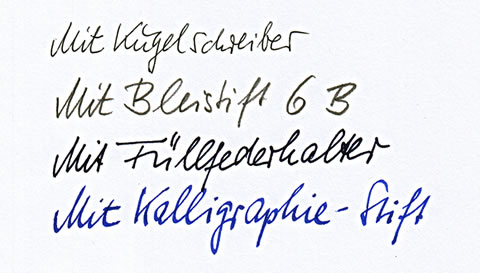 Mit Kugelschreiber
Mit Bleistift 6 B
Mit Füllfederhalter
Mit Kalligraphie-Stift